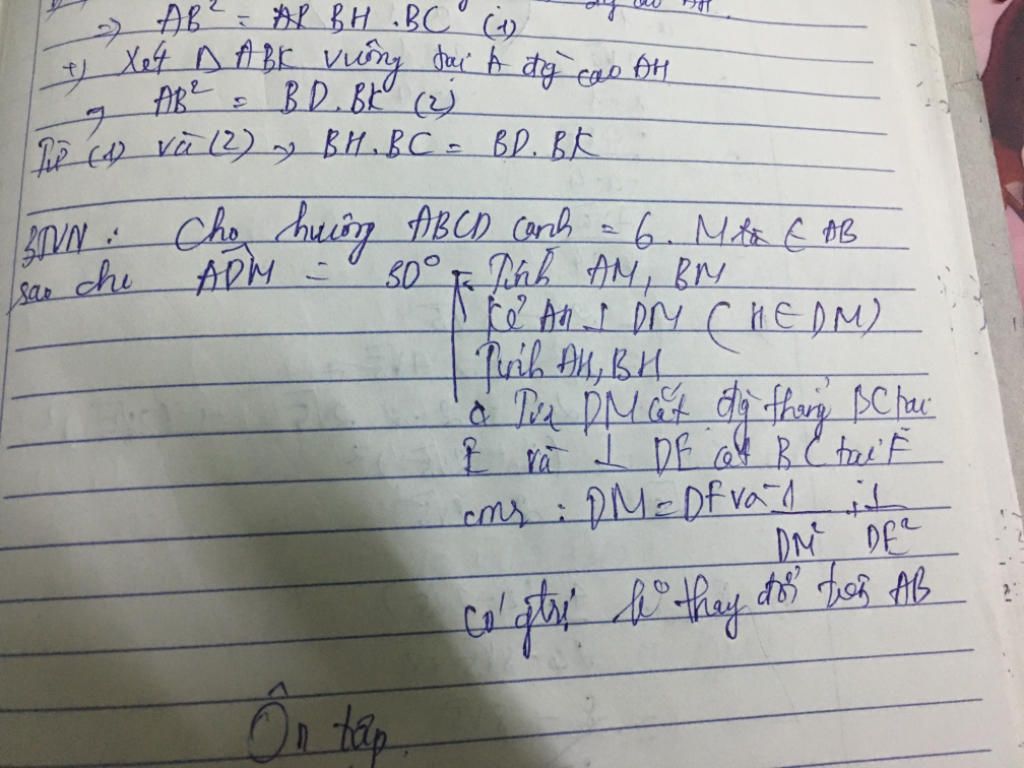 ⇒ AB² = BH.BC (1)
+) Xét Δ ABK vuông tại A đg cao AH
⇒ AB² = BD.BK (2)
Từ (1) và (2) ⇒ BH.BC = BD.BK
BTVN : Cho huông ABCD cạnh = 6. M ∈ AB
sao cho ADM = 30° - Tính AM, BM
Kẻ AH ⊥ DM (H ∈ DM)
Tính AH, BH
DM cắt đg thẳng BC tại
E và ⊥ DE cắt BC tại F
cmr : DM = DF và 1/DM² + 1/DE²
có gtrị ko thay đổi trên AB
Ôn tập.